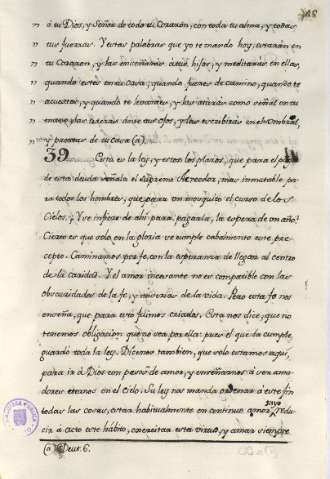 » á tu Dios, y Señor de todo tu Corazon, con toda tu alma, y todas
» tus fuerzas. Y estas palabras que yo te mando hoy, estarán en
» tu Corazon, y las enseñarás á tus hijos, y meditarás en ellas,
» quando estés en tu casa, quando fueres de camino, quando te
» acuestes, y quando te levantes, y las atarás como señal en tu
» mano, las tendrás ante tus ojos, y las escribirás en el umbral,
» y puertas de tu casa (a)
39 Esta es la ley, y estos los plazos, que para el pago
de esta deuda señala el supremo Acreedor, mas inmutable pa
ra todos los hombres, que para un mosquito el curso de los
Cielos. ¿Y se infiere de ahí para pagarla, la espera de un año?
Cierto es que solo en la gloria se cumple cabalmente este pre-
cepto. Caminamos por fe, con la esperanza de llegar al centro
de la caridad. Y el amor incesante no es compatible con las
obscuridades de la fe, y miserias de la vida. Pero esta fe nos
enseña, que para eso fuimos criados. Esta nos dice, que no
tenemos obligacion que no sea por ella: pues el que la cumple,
guarda toda la ley. Dicenos tambien, que solo estamos aquí,
para ir á Dios con pasos de amor, y enseñarnos á ser ama-
dores eternos en el cielo. Su ley nos manda ordenar á este fin
todas las cosas, estar habitualmente en continuo amor suyo, redu-
cir á acto este hábito, exercitar esta virtud, y amar siempre
(a) Deut. 6.